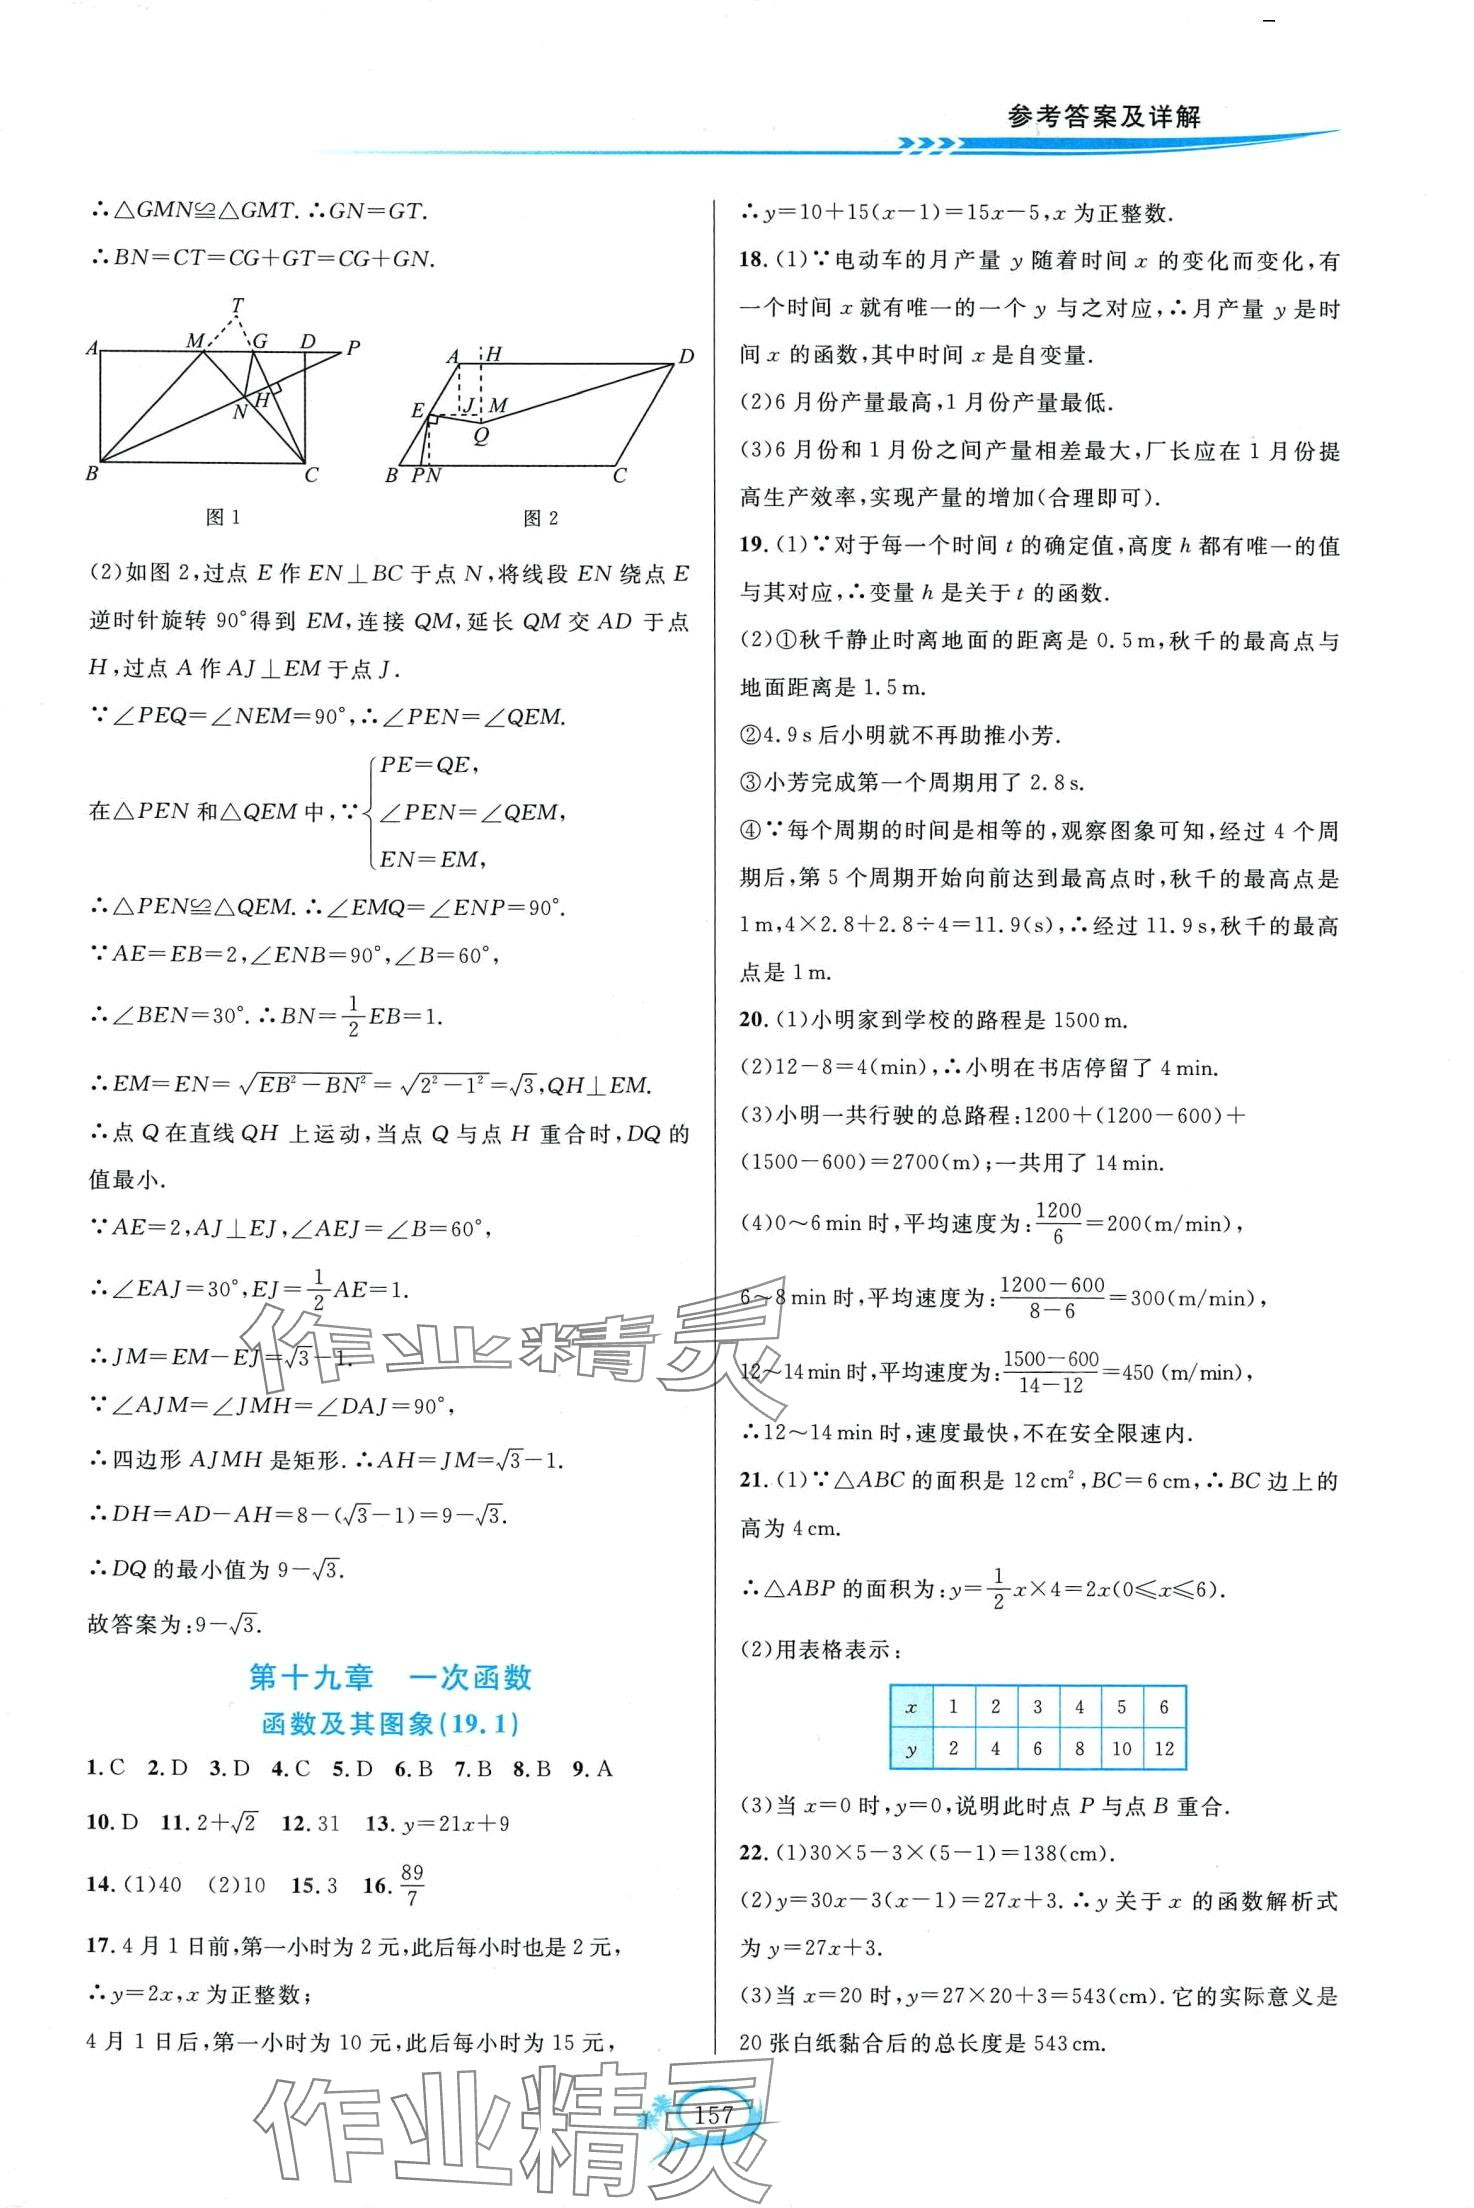 参考答案及详解
∴△GMN≌△GMT.∴GN=GT.
∴BN=CT=CG+GT=CG+GN.
T
A M G D P
N H
B C
图1
A H D
E J M
Q
B P N C
图2
(2)如图2,过点E作EN⊥BC于点N,将线段EN绕点E
逆时针旋转90°得到EM,连接QM,延长QM交AD于点
H,过点A作AJ⊥EM于点J.
∵∠PEQ=∠NEM=90°,∴∠PEN=∠QEM.
在△PEN和△QEM中,∵{PE=QE,
∠PEN=∠QEM,
EN=EM,
∴△PEN≌△QEM.∴∠EMQ=∠ENP=90°.
∵AE=EB=2,∠ENB=90°,∠B=60°,
∴∠BEN=30°.∴BN=1/2EB=1.
∴EM=EN=√(EB²-BN²)=√(2²-1²)=√3,QH⊥EM.
∴点Q在直线QH上运动,当点Q与点H重合时,DQ的
值最小.
∵AE=2,AJ⊥EJ,∠AEJ=∠B=60°,
∴∠EAJ=30°,EJ=1/2AE=1.
∴JM=EM-EJ=√3-1.
∵∠AJM=∠JMH=∠DAJ=90°,
∴四边形AJMH是矩形.∴AH=JM=√3-1.
∴DH=AD-AH=8-(√3-1)=9-√3.
∴DQ的最小值为9-√3.
故答案为:9-√3.
第十九章 一次函数
函数及其图象(19.1)
1.C 2.D 3.D 4.C 5.D 6.B 7.B 8.B 9.A
10.D 11.2+√2 12.31 13.y=21x+9
14.(1)40 (2)10 15.3 16.89/7
17.4月1日前,第一小时为2元,此后每小时也是2元,
∴y=2x,x为正整数;
4月1日后,第一小时为10元,此后每小时为15元,
∴y=10+15(x-1)=15x-5,x为正整数.
18.(1)∵电动车的月产量y随着时间x的变化而变化,有
一个时间x就有唯一的一个y与之对应,∴月产量y是时
间x的函数,其中时间x是自变量.
(2)6月份产量最高,1月份产量最低.
(3)6月份和1月份之间产量相差最大,厂长应在1月份提
高生产效率,实现产量的增加(合理即可).
19.(1)∵对于每一个时间t的确定值,高度h都有唯一的值
与其对应,∴变量h是关于t的函数.
(2)①秋千静止时离地面的距离是0.5m,秋千的最高点与
地面距离是1.5m.
②4.9s后小明就不再助推小芳.
③小芳完成第一个周期用了2.8s.
④∵每个周期的时间是相等的,观察图象可知,经过4个周
期后,第5个周期开始向前达到最高点时,秋千的最高点是
1m,4×2.8+2.8÷4=11.9(s),∴经过11.9s,秋千的最高
点是1m.
20.(1)小明家到学校的路程是1500m.
(2)12-8=4(min),∴小明在书店停留了4min.
(3)小明一共行驶的总路程:1200+(1200-600)+
(1500-600)=2700(m);一共用了14min.
(4)0~6min时,平均速度为:1200/6=200(m/min),
6~8min时,平均速度为:(1200-600)/(8-6)=300(m/min),
12~14min时,平均速度为:(1500-600)/(14-12)=450(m/min),
∴12~14min时,速度最快,不在安全限速内.
21.(1)∵△ABC的面积是12cm²,BC=6cm,∴BC边上的
高为4cm.
∴△ABP的面积为:y=1/2x×4=2x(0≤x≤6).
(2)用表格表示:
x 1 2 3 4 5 6
y 2 4 6 8 10 12
(3)当x=0时,y=0,说明此时点P与点B重合.
22.(1)30×5-3×(5-1)=138(cm).
(2)y=30x-3(x-1)=27x+3.∴y关于x的函数解析式
为y=27x+3.
(3)当x=20时,y=27×20+3=543(cm).它的实际意义是
20张白纸黏合后的总长度是543cm.
作业精灵
作业精灵
157